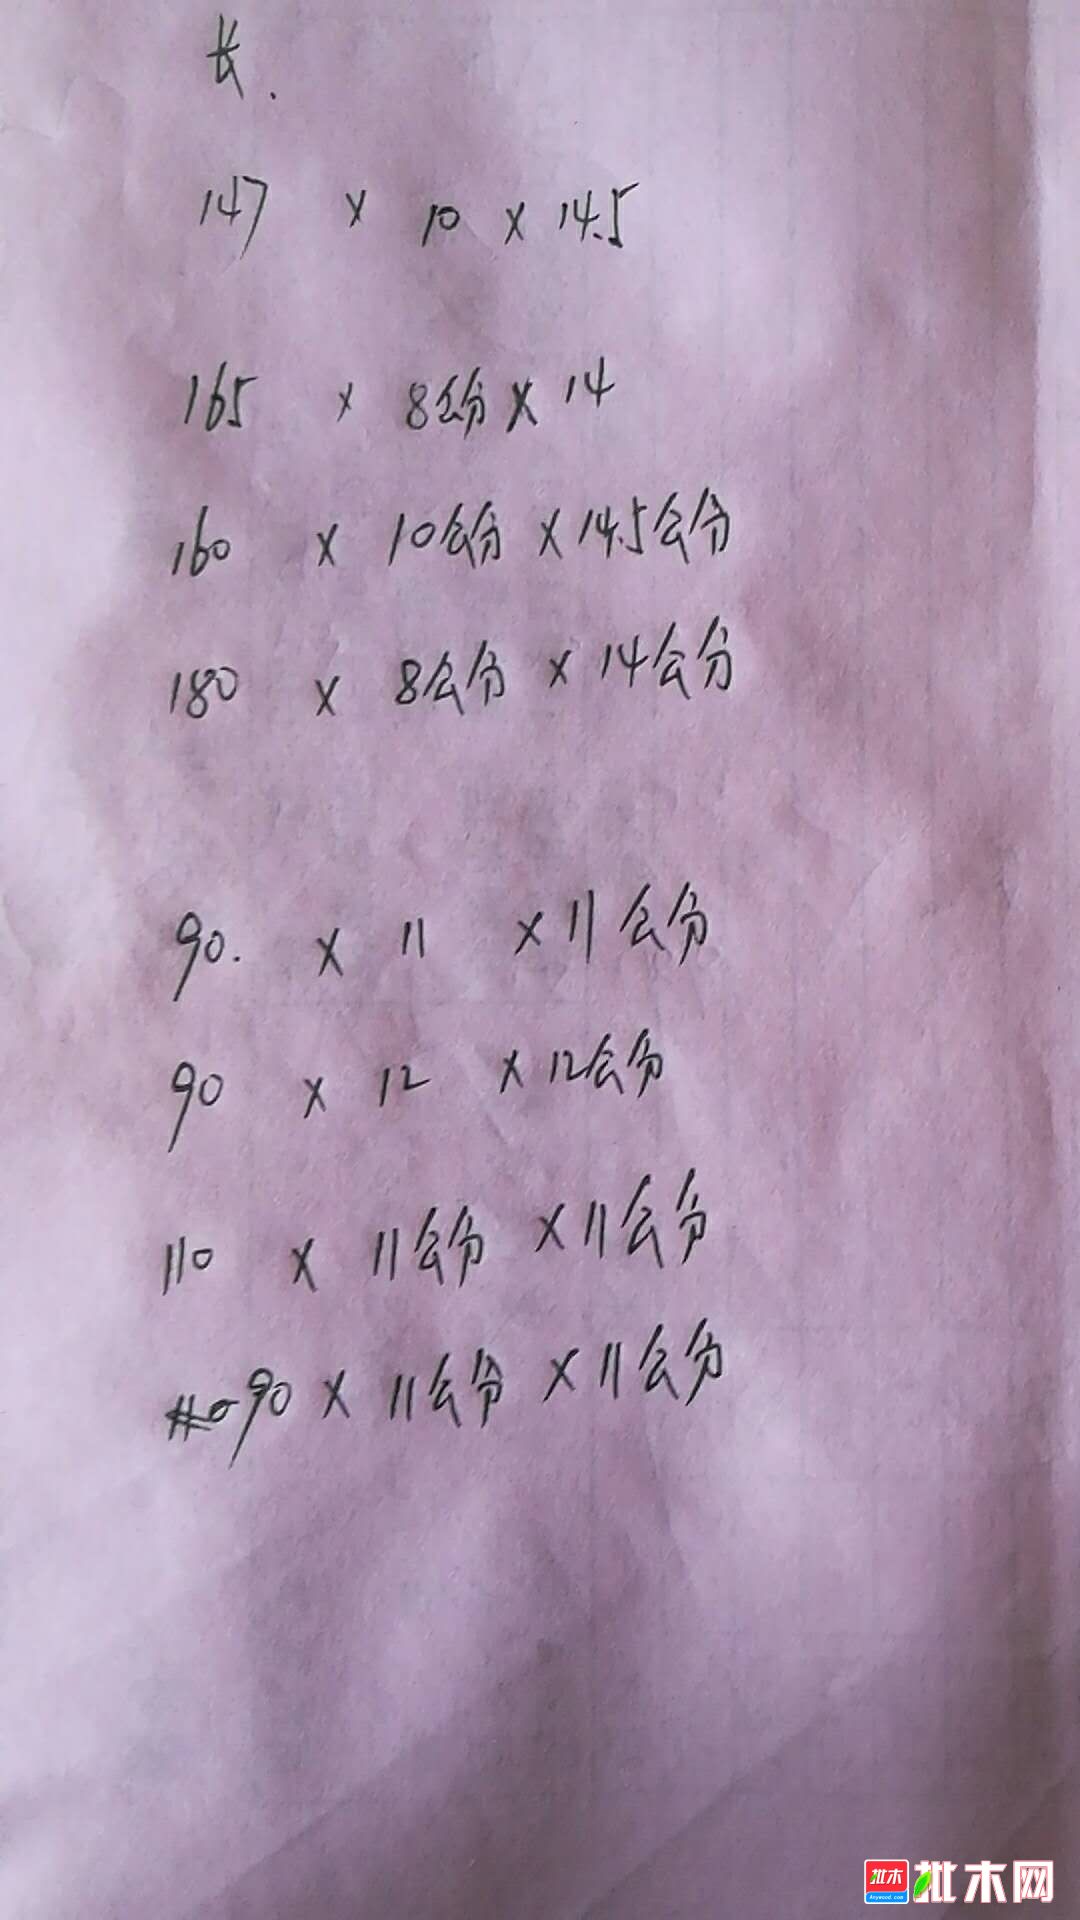 长.
147 × 10 × 14.5
165 × 8公分 × 14
160 × 10公分 × 14.5公分
180 × 8公分 × 14公分
90. × 11 × 11公分
90 × 12 × 12公分
110 × 11公分 × 11公分
90 × 11公分 × 11公分
批木 批木网
Anywood.com